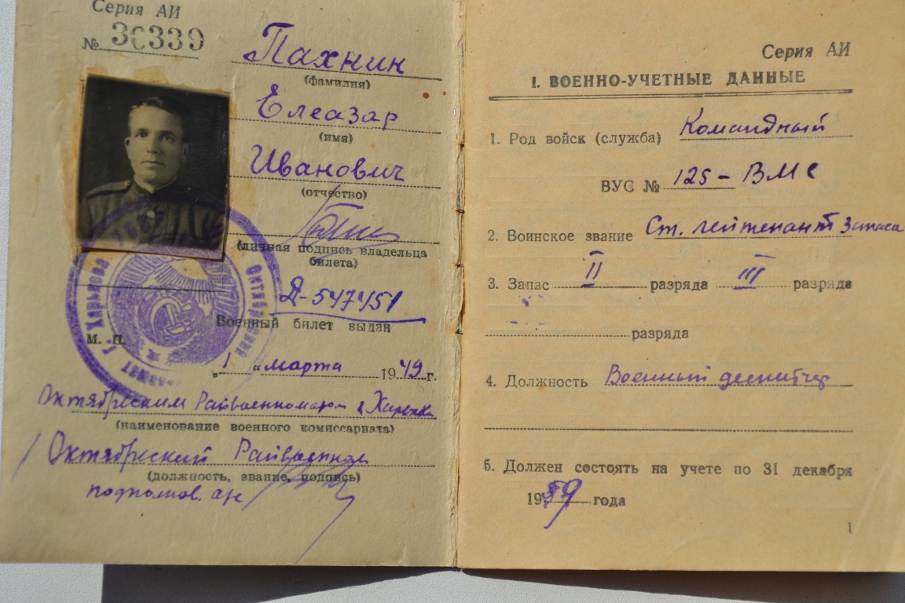 Серия АИ
№ 36339
Пахнин
(фамилия)
Елеазар
(имя)
Иванович
(отчество)
(личная подпись владельца
билета)
Д-547451
Военный билет выдан
М. П.
„1" марта 1949 г.
Октябрьским Райвоенкоматом г. Харькова
(наименование военного комиссариата)
Октябрьский
(должность, звание, подпись)
Серия АИ
I. ВОЕННО-УЧЕТНЫЕ ДАННЫЕ
1. Род войск (служба) Командный
ВУС № 125-ВМС
2. Воинское звание Ст. лейтенант запаса
3. Запас II разряда III разряда
разряда
4. Должность Военный
5. Должен состоять на учете по 31 декабря
1959 года
1